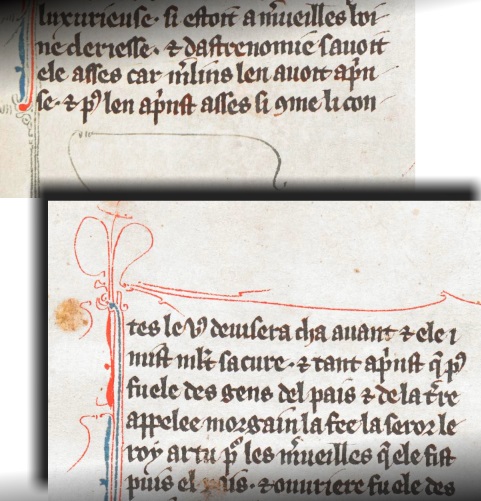 luxurieuse. si estoit a mͥueilles boi
ne clergesse. ⁊ dastrenomie sauoit
ele asses car mͥlins len auoit apͥn
se. ⁊ pꝰ len apͥnst asses si ꝯme li con
tes le vꝰ deuisera cha auant ⁊ ele i
mist ml̃t sa cure. ⁊ tant apͥnst q̃ pꝰ
fu ele des gens del pais ⁊ de la t̾re
appelee morgain la fee la seror le
roy artu pꝰ les mͥueilles q̃le fist
puis el pais. ⁊ ouuriere fu ele des